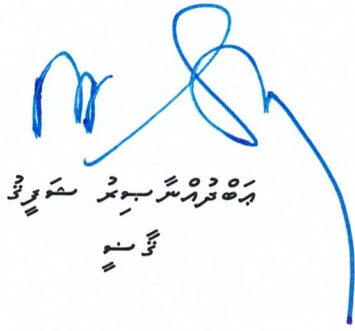 ޢަބްދުއްނާޞިރު ޝަފީޤު
ޤާޟީ